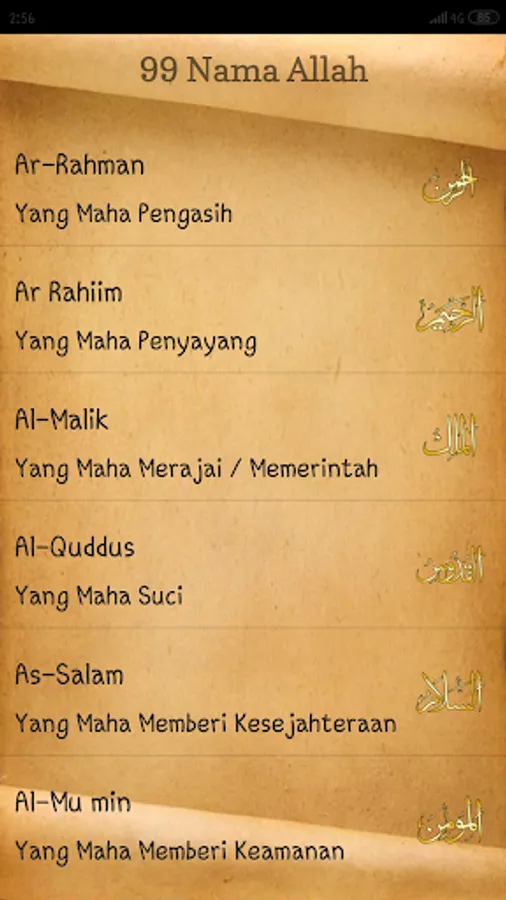 2:56 4G 85
99 Nama Allah
Ar-Rahman
الرحمن
Yang Maha Pengasih
Ar Rahiim
الرحيم
Yang Maha Penyayang
Al-Malik
الملك
Yang Maha Merajai / Memerintah
Al-Quddus
القدوس
Yang Maha Suci
As-Salam
السلام
Yang Maha Memberi Kesejahteraan
Al-Mu min
المؤمن
Yang Maha Memberi Keamanan